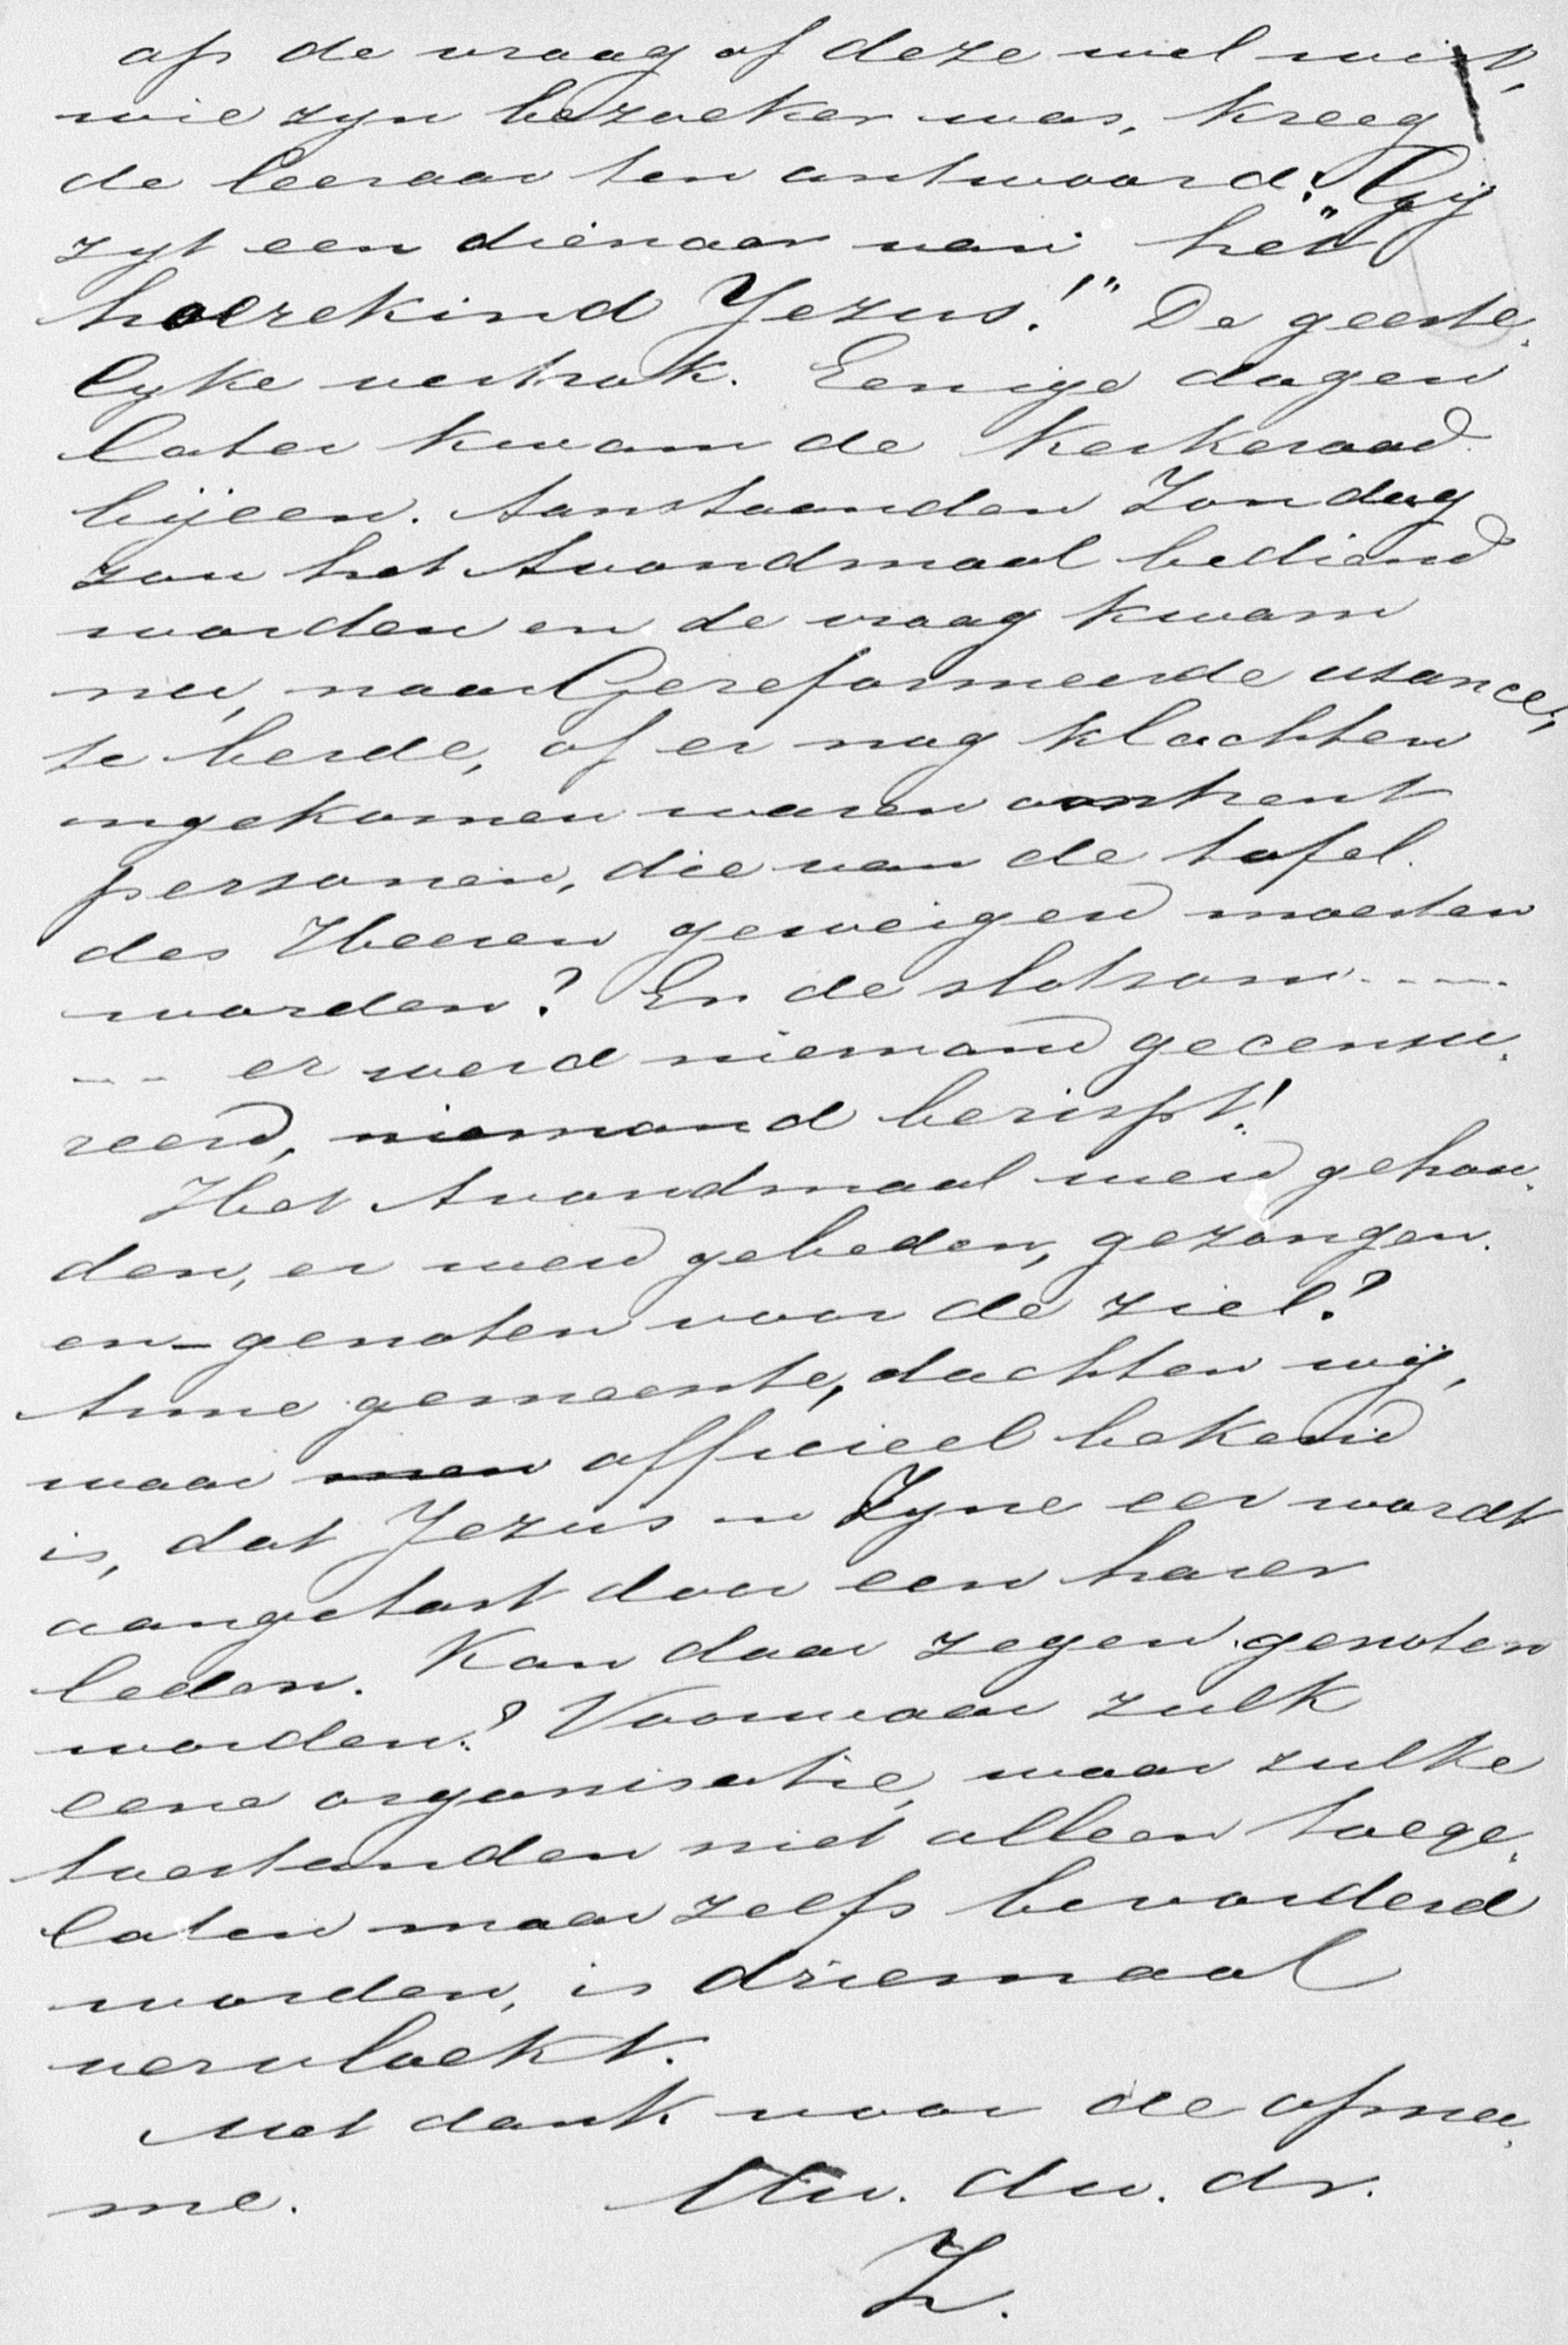 op de vraag of deze wel wist,
wie zyn bezoeker was, kreeg
de leeraar ten antwoord: "Gij
zyt een dienaar van het
hoerekind Jezus!" De geeste-
lyke vertrok. Eenige dagen
later kwam de Kerkeraad
bijeen. Aanstaanden Zondag
zou het Avondmaal bediend
worden en de vraag kwam
nu, naar Gereformeerde usance,
te berde, of er nog klachten
ingekomen waren omtrent
personen, die van de tafel
des Heeren geweigerd moesten
worden? En de slotsom ----
--- er werd niemand gecensu-
reerd, niemand berispt!
Het Avondmaal werd gehou-
den, er werd gebeden, gezongen
en - genoten voor de ziel?
Arme gemeente, dachten wij,
waar men officieel bekend
is, dat Jezus in Zyne eer wordt
aangetast door een harer
leden. Kan daar zegen genoten
worden? Voorwaar zulk
eene organisatie, waar zulke
toestanden niet alleen toege-
laten maar zelfs bevorderd
worden, is driemaal
vervloekt.
Met dank voor de opna-
me. Uw. dw. dr.
Z.